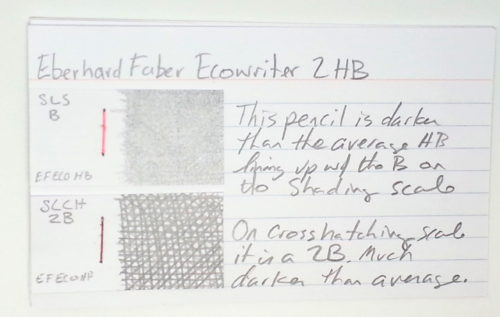 Eberhard Faber Ecowriter 2 HB
SLS
B
EFECO HB
This pencil is darker
than the average HB
lining up w/ the B on
the Shading scale
SLCH
2B
On crosshatching scale
it is a 2B. Much
darker than average.